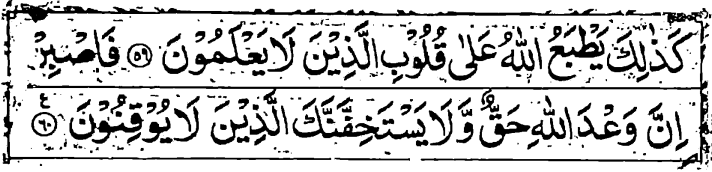 كَذٰلِكَ يَطْبَعُ اللّٰهُ عَلٰى قُلُوْبِ الَّذِيْنَ لَا يَعْلَمُوْنَ ﴿۵۹﴾ فَاصْبِرْ
اِنَّ وَعْدَ اللّٰهِ حَقٌّ وَّلَا يَسْتَخِفَّنَّكَ الَّذِيْنَ لَا يُوْقِنُوْنَ ﴿۶۰﴾ ع